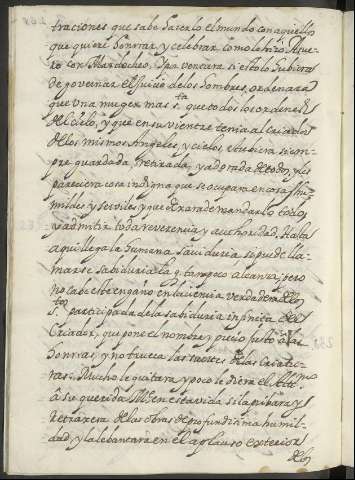 traciones que sabe hacerlo el mundo con aquellos
que quiere honrrar y celebrar como lo hiço Asue-
ro con Mardocheo. Y si esto lo hubiera
de governar el juicio de los hombres, ordenara
que una muger mas s.ta que todos los ordenes
del cielo, y que en su vientre tenia al Criador
de los mismos Angeles, y cielos, estubiera siem-
pre guardada, retirada, y adorada de todos, y les
pareciera cosa indigna que se ocupara en cosas hu-
mildes y serviles y que dexara de mandarlo todo,
o admitir toda reverencia y authoridad. Hasta
aqui llega la humana sabiduria si puede lla-
marse sabiduria la q. tan poco alcanza, pero
no cabe este engaño en la ciencia verdadera de los
s.tos participada de la sabiduria infinita del
Criador, que pone el nombre y precio justo a las
honrras, y no trueca las suertes de las Criatu-
ras. Mucho le quitara y poco le diera el Alti.mo
a su querida M.e en esta vida si la pribara y
retraxera de las obras de profundissima humil-
dad, y la lebantara en el aplauso exterior
de los